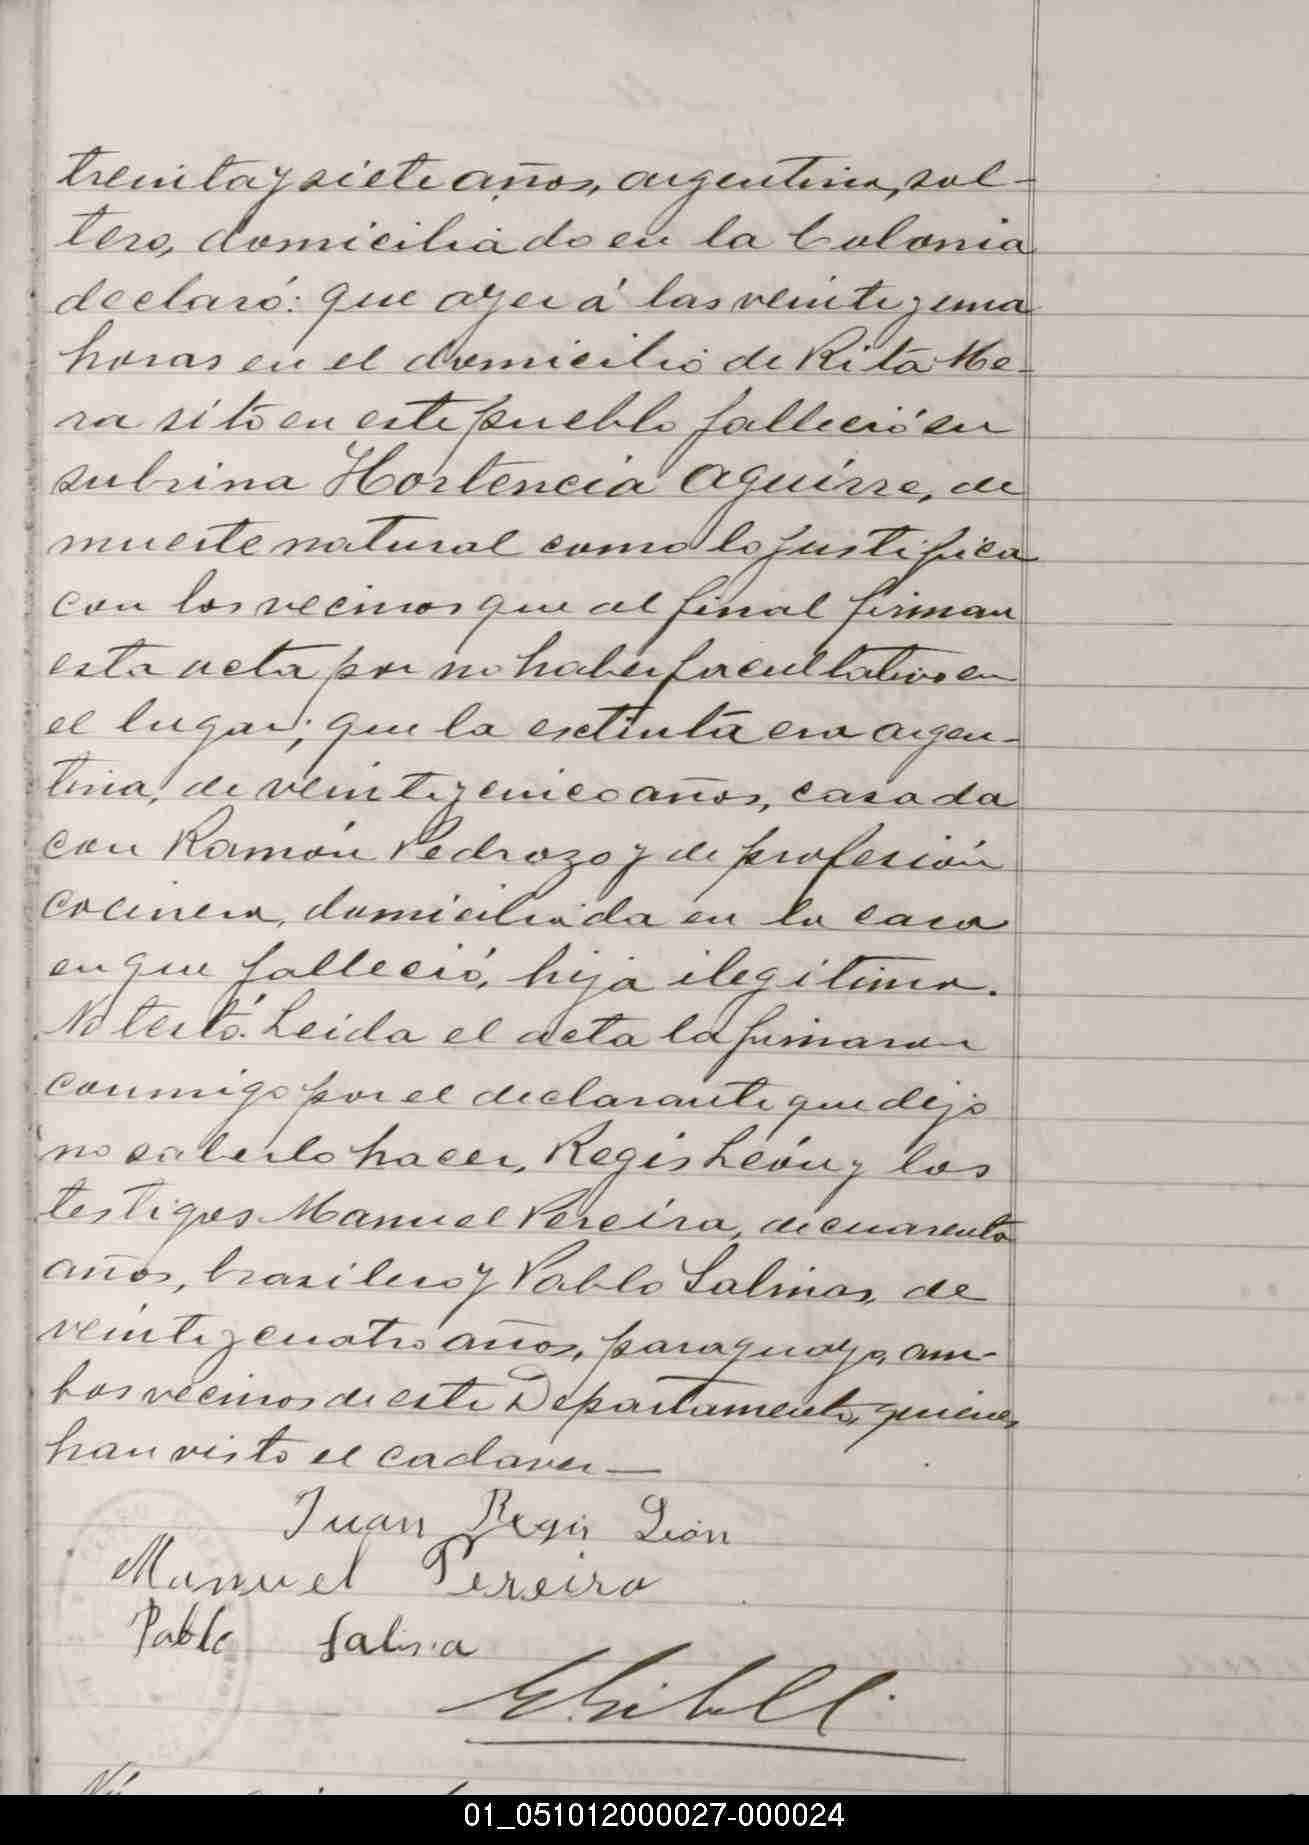 treinta y siete años, argentino, sol-
tero, domiciliado en la Colonia
declaró: que ayer á las veinte y una
horas en el domicilio de Rita Me-
za sito en este pueblo falleció su
subrina Hortencia Aguirre, de
muerte natural como lo justifica
con los vecinos que al final firman
esta acta por no haber facultativo en
el lugar; que la extinta era argen-
tina, de veinte y cinco años, casada
con Ramón Pedrozo y de profesión
cocinera, domiciliada en la casa
en que falleció, hija ilegítima.
No testó. Leida el acta la firmaron
conmigo por el declarante que dijo
no saberlo hacer, Regis León y los
testigos Manuel Pereira, de cuarenta
años, brasilero y Pablo Salinas, de
veinte y cuatro años, paraguayo, am-
bos vecinos de este Departamento, quienes
han visto el cadaver—
Juan Regis León
Manuel Pereira
Pablo Salina
01_051012000027-000024